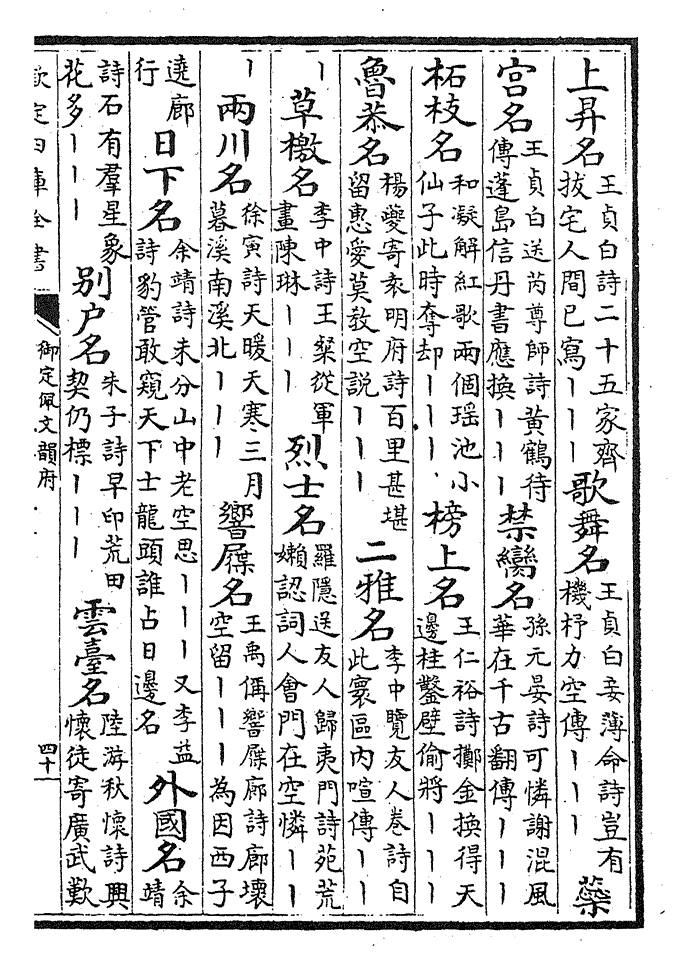 上昇名王貞白詩二十五家齊拔宅人間已寫丨丨丨歌舞名王貞白妾薄命詩豈有機杼力空傳丨丨丨蘂
宮名王貞白送芮尊師詩黃鶴待傳蓬島信丹書應換丨丨丨禁臠名孫元晏詩可憐謝混風華在千古翻傳丨丨丨
柘枝名和凝解紅歌兩個瑶池小仙子此時奪却丨丨丨榜上名王仁裕詩擲金換得天邊桂鑿壁偷將丨丨丨
魯恭名楊夔寄袁明府詩百里甚堪留惠愛莫敎空説丨丨丨二雅名李中覽友人卷詩自此寰區内喧傳丨丨
丨草檄名李中詩王粲從軍畫陳琳丨丨丨烈士名羅隱送友人歸夷門詩苑荒嬾認詞人會門在空憐丨丨
丨兩川名徐寅詩天暖天寒三月暮溪南溪北丨丨丨響屧名王禹偁響屧廊詩廊壞空留丨丨丨為因西子
遶廊行日下名余靖詩未分山中老空思丨丨丨又李益詩豹管敢窺天下士龍頭誰占日邊名外國名余靖
詩石有羣星象花多丨丨丨别户名朱子詩早印荒田契仍標丨丨丨雲臺名陸游秋懷詩興懷徒寄廣武歎
欽定四庫全書 御定佩文韻府 四十